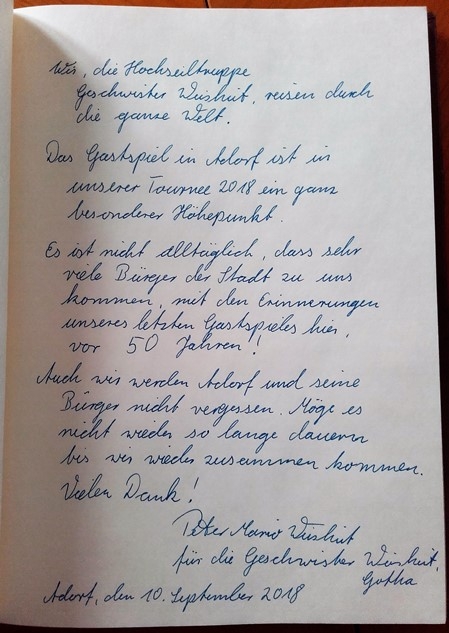 Wir, die Hochseiltruppe
Geschwister Weisheit, reisen durch
die ganze Welt.
Das Gastspiel in Adorf ist in
unserer Tournee 2018 ein ganz
besonderer Höhepunkt.
Es ist nicht alltäglich, dass sehr
viele Bürger der Stadt zu uns
kommen, mit den Erinnerungen
unseres letzten Gastspieles hier,
vor 50 Jahren!
Auch wir werden Adorf und seine
Bürger nicht vergessen. Möge es
nicht wieder so lange dauern
bis wir wieder zusammen kommen.
Vielen Dank!
Peter Mario Weisheit
für die Geschwister Weisheit,
Gotha
Adorf, den 10. September 2018